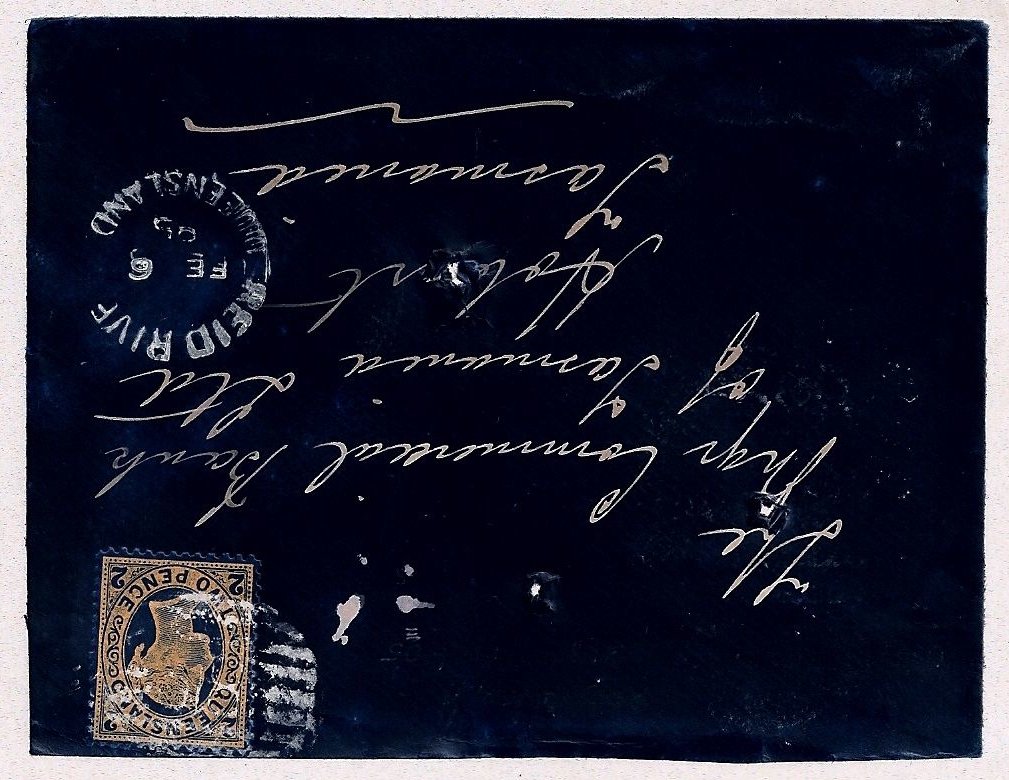 The
Mgr Commercial Bank
of Tasmania Ltd
Hobart
Tasmania
REID RIVE
QUEENSLAND
FE 6
05
QUEENSLAND
TWO PENCE
2 2
2 2